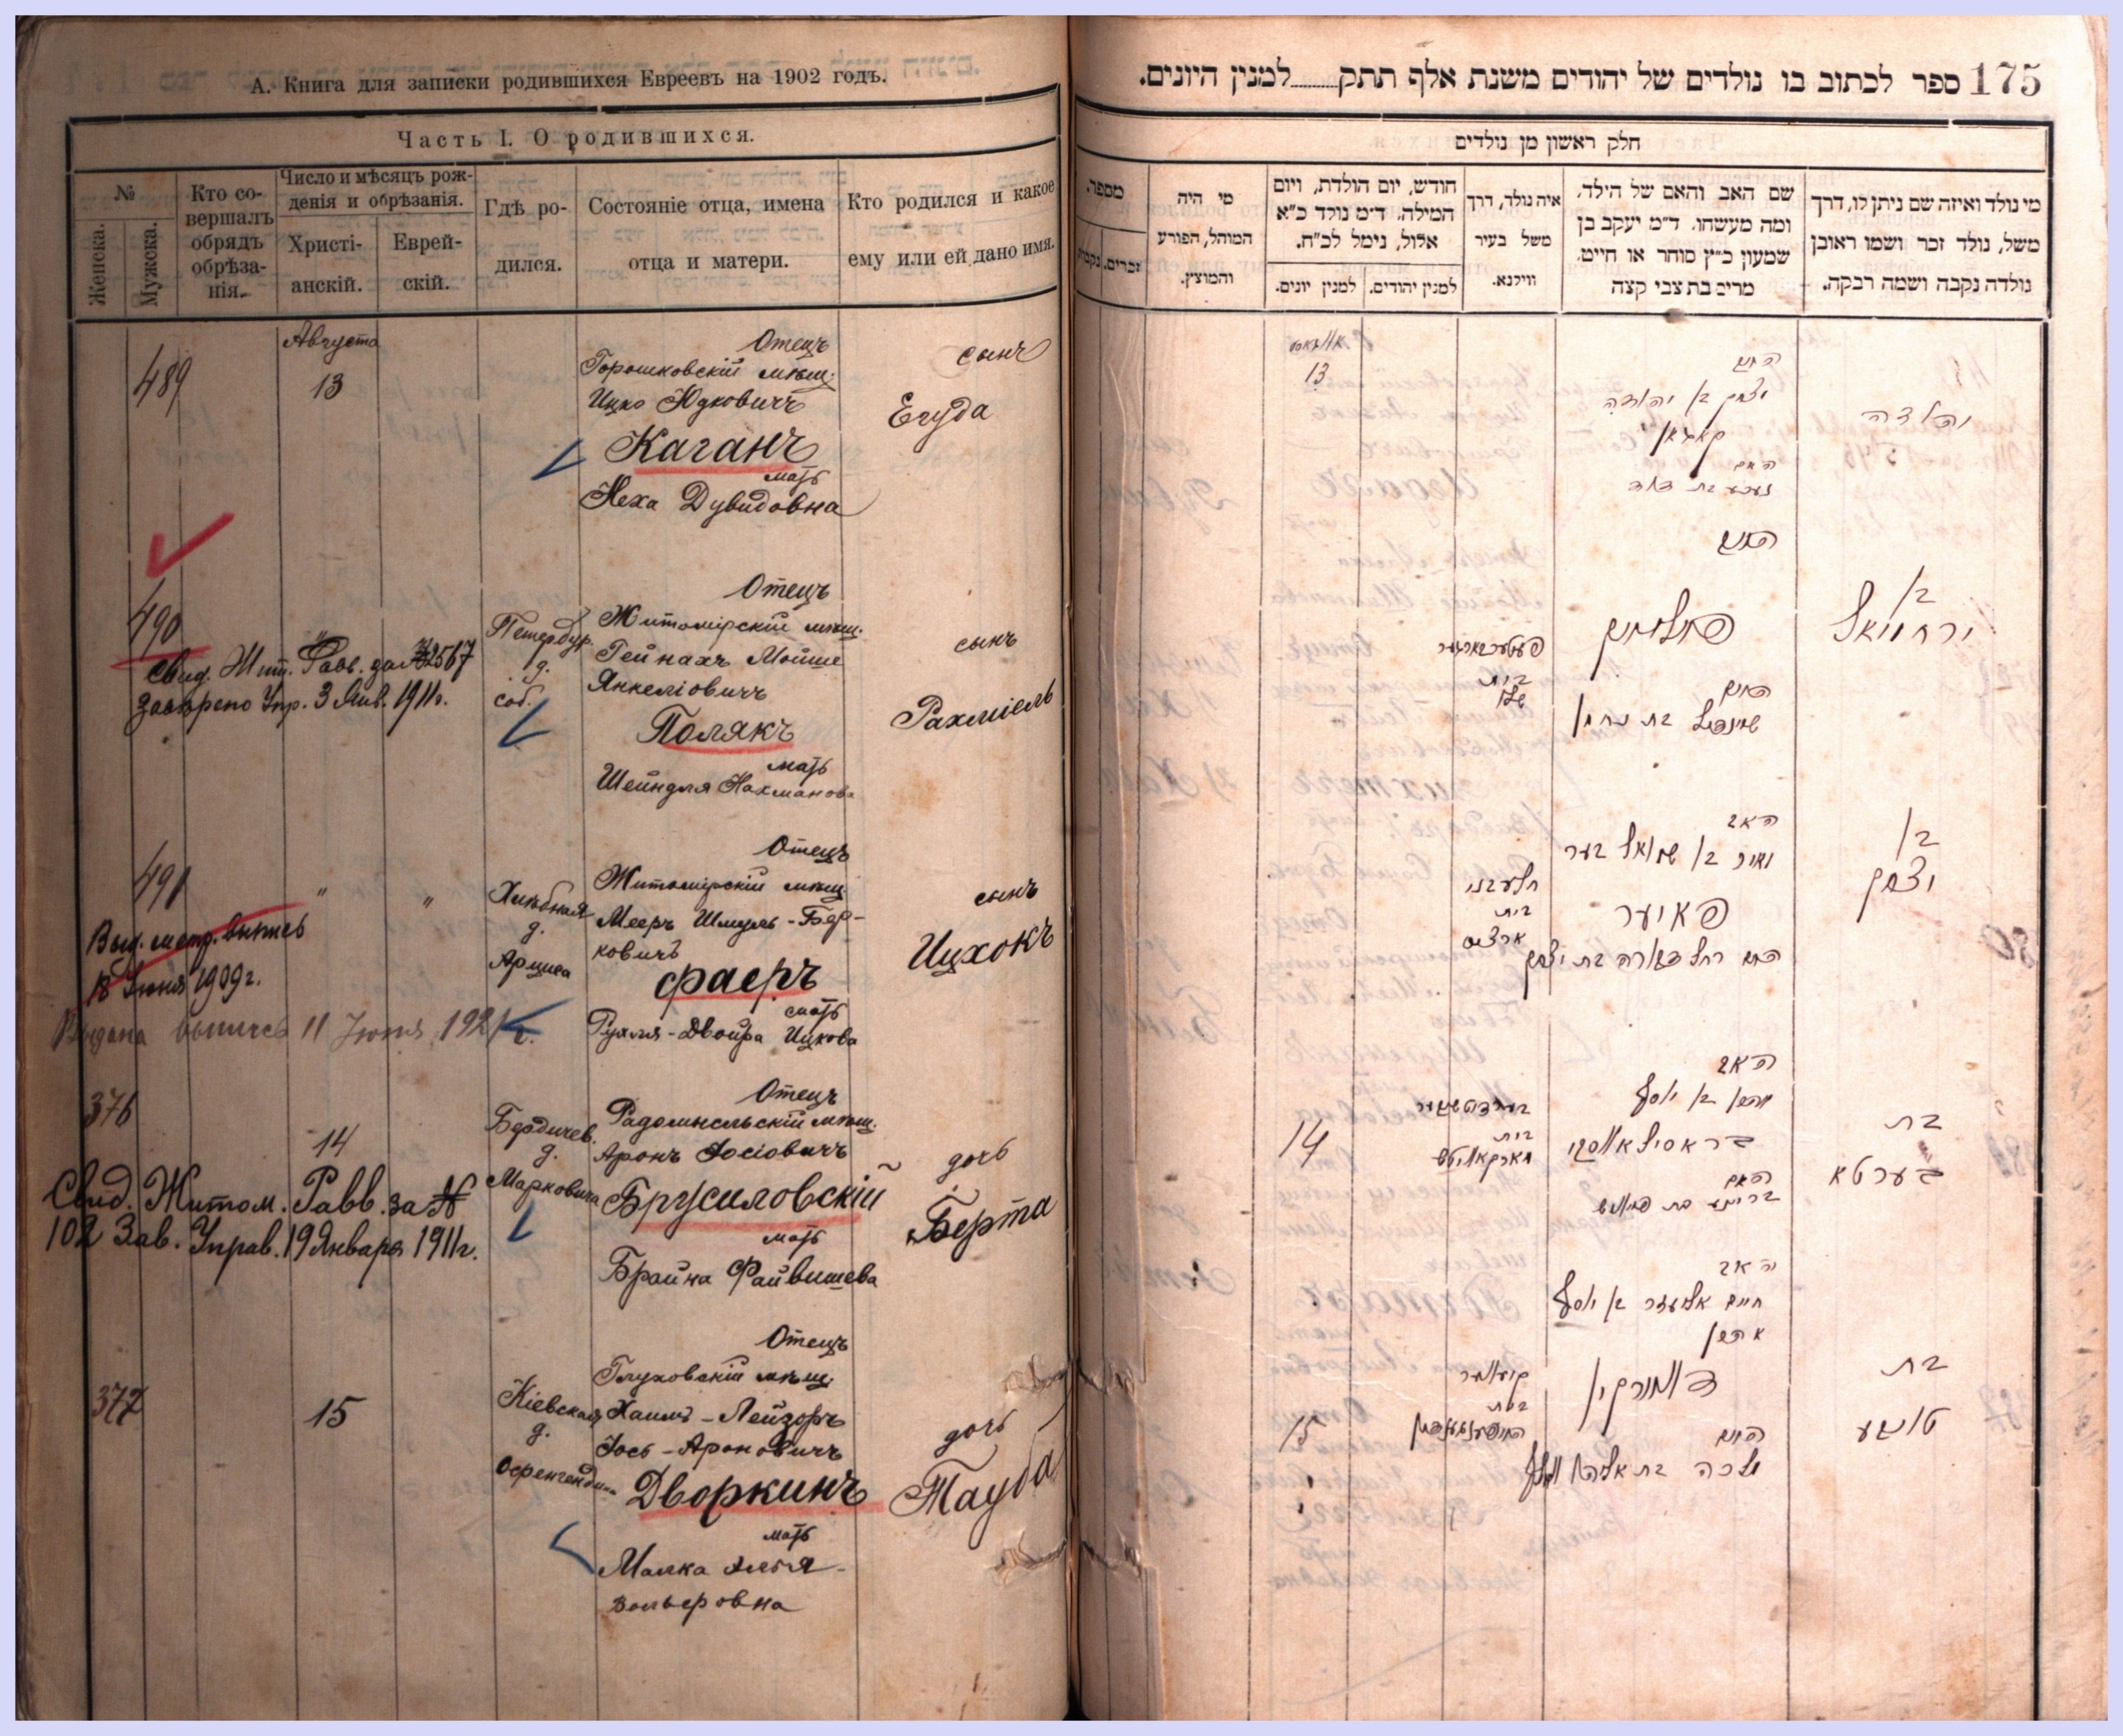 А. Книга для записки родившихся Евреевъ на 1902 годъ.
Часть I. О родившихся.
№
Женска.
Мужска.
Кто со-
вершалъ
обрядъ
обрѣза-
нія.
Число и мѣсяцъ рож-
денія и обрѣзанія.
Христі-
анскій.
Еврей-
скій.
Гдѣ ро-
дился.
Состояніе отца, имена
отца и матери.
Кто родился и какое
ему или ей дано имя.
489
Августа
13
Отецъ
Горошковскій мѣщ.
Ицко Юдковичъ
Каганъ
мать
Неха Дувидовна
сынъ
Егуда
490
"
Свид. Жит. Равв. за №2567
Заверено Упр. 3 Янв. 1911г.
Петербур.
д.
соб.
Отецъ
Житомірскій мѣщ.
Гейнахъ Мойше
Янкеліовичъ
Полякъ
мать
Шейндля Нахманова
сынъ
Рахміель
491
"
"
Выд. метр. выпись
18 Іюня 1909г.
Выдана выпись 11 Іюня 1921г.
Хлѣбная
д.
Арциса
Отецъ
Житомірскій мѣщ
Мееръ Шмуль-Бер-
ковичъ
Фаеръ
мать
Рухля-Двойра Ицкова
сынъ
Ицхокъ
376
14
Свид. Житом. Равв. за №
102 Зав. Управ. 19 Января 1911г.
Бердичев.
д.
Марковича
Отецъ
Радомысльскій мѣщ.
Аронъ Іосіовичъ
Брусиловскій
мать
Брайна Файвишева
дочь
Берта
377
15
Кіевская
д.
Отецъ
Глуховскій мѣщ.
Хаимъ-Лейзоръ
Іось-Ароновичъ
Дворкинъ
мать
Малка Элья-
Вольфовна
дочь
Тауба
175
ספר לכתוב בו נולדים של יהודים משנת אלף תתק......למנין היונים.
חלק ראשון מן נולדים
מספר.
זכרים.
נקבות
מי היה
המוהל, הפורע
והמוצץ.
חודש, יום הולדת, ויום
המילה. ד"מ נולד כ"א
אלול, נימל לכ"ח.
למנין יונים.
למנין יהודים.
איה נולד, דרך
משל בעיר
ווילנא.
שם האב והאם של הילד,
ומה מעשהו. ד"מ יעקב בן
שמעון כ"ץ סוחר או חייט.
מרים בת צבי קצה
מי נולד ואיזה שם ניתן לו, דרך
משל, נולד זכר ושמו ראובן
נולדה נקבה ושמה רבקה.
אווגוסט
13
האב
יצחק בן יהודה
קאגאן
האם
נעכע בת דוד
האב
פאליאק
האם
שיינדיל בת נחמן
פעטערבורגער
בית
שלו
בן
ירחמיאל
האב
מאיר בן שמואל בער
פאיער
האם רחל דבורה בת יצחק
בית
בן
יצחק
האב
אהרן בן יוסף
בראסילאווסקי
האם
בריינע בת פייוויש
בערדיטשעווער
בית
מארקאוויטש
14
בת
בערטא
האב
חיים אליעזר בן יוסף
אהרן
דווארקין
האם
מלכה בת אליהו וואלף
קיעווער
בית
15
בת
טויבע